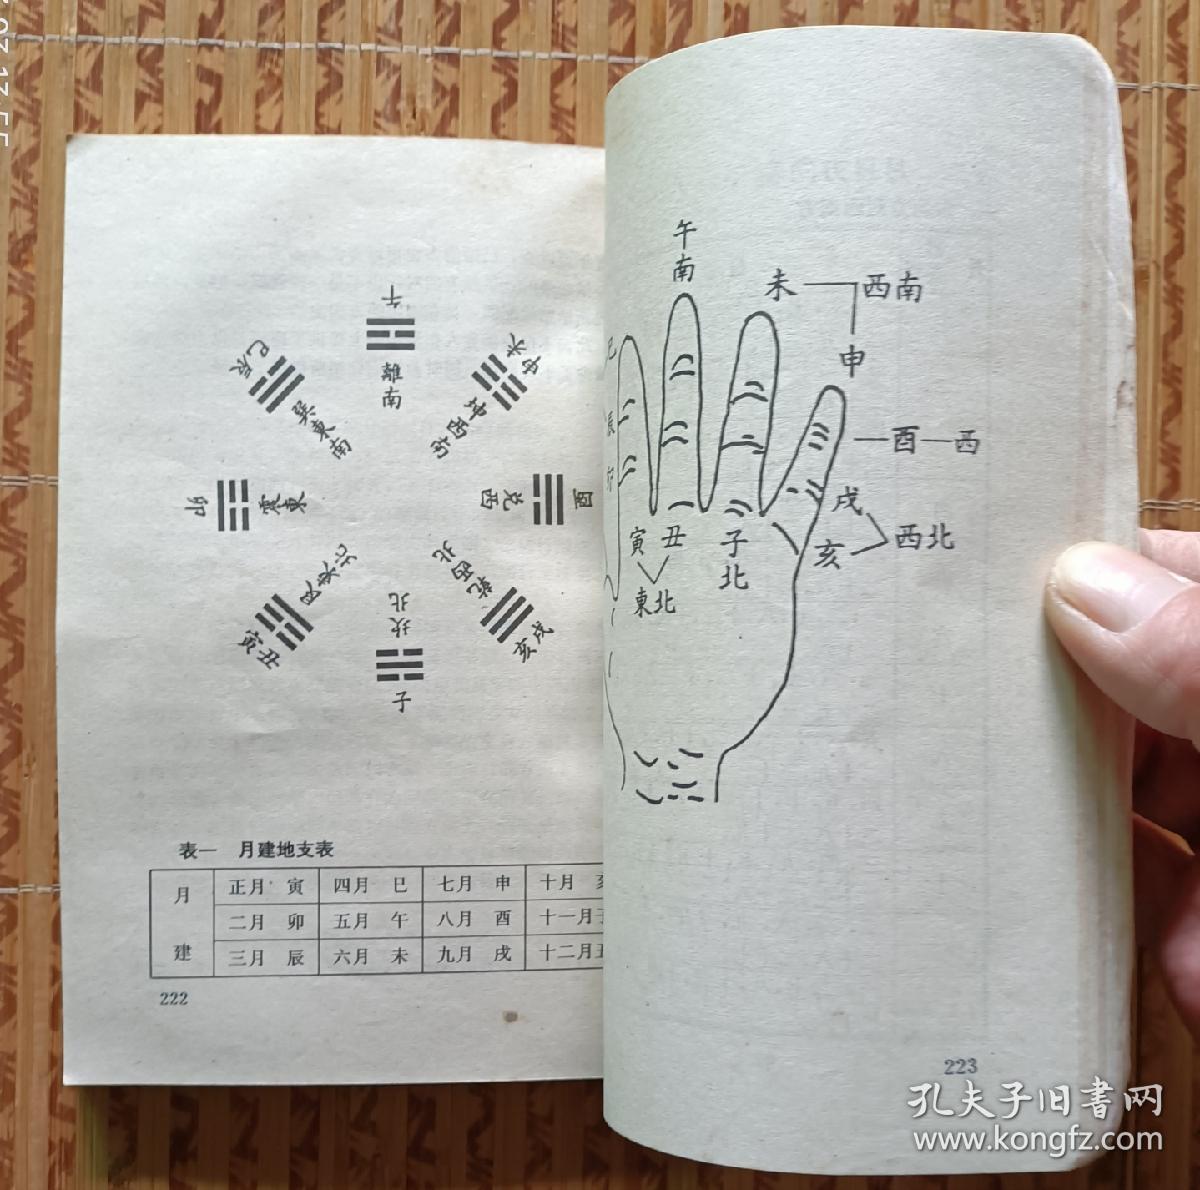 午
離
南
未申
坤西南
巳辰
巽東南
卯
震東
兌西
酉
艮東北
寅丑
北
坎
子
乾西北
亥戌
表一 月建地支表
月建
正月 寅 四月 巳 七月 申 十月
二月 卯 五月 午 八月 酉 十一月
三月 辰 六月 未 九月 戌 十二月
222
午
南
未 西南
申
巳
辰
卯
酉 西
戌
亥
西北
寅 丑
東北
子
北
223
孔夫子旧书网
www.kongfz.com